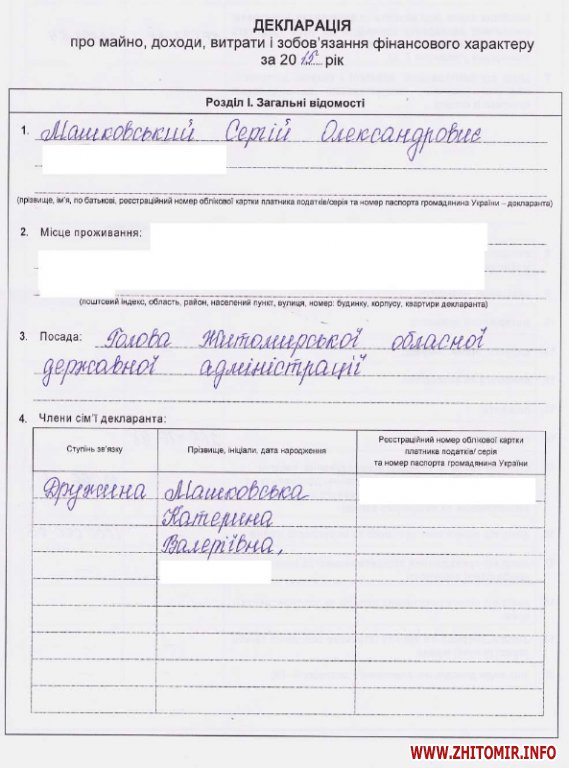 ДЕКЛАРАЦІЯ
про майно, доходи, витрати і зобов'язання фінансового характеру
за 2015 рік
Розділ I. Загальні відомості
1. Машковський Сергій Олександрович
(прізвище, ім'я, по батькові, реєстраційний номер облікової картки платника податків/серія та номер паспорта громадянина України – декларанта)
2. Місце проживання:
(поштовий індекс, область, район, населений пункт, вулиця, номер: будинку, корпусу, квартири декларанта)
3. Посада: Голова Житомирської обласної
державної адміністрації
4. Члени сім'ї декларанта:
Ступінь зв'язку
Прізвище, ініціали, дата народження
Реєстраційний номер облікової картки
платника податків/ серія
та номер паспорта громадянина України
Дружина
Машковська
Катерина
Валеріївна,
WWW.ZHITOMIR.INFO